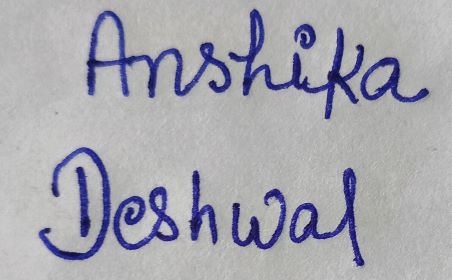 Anshika
Deshwal